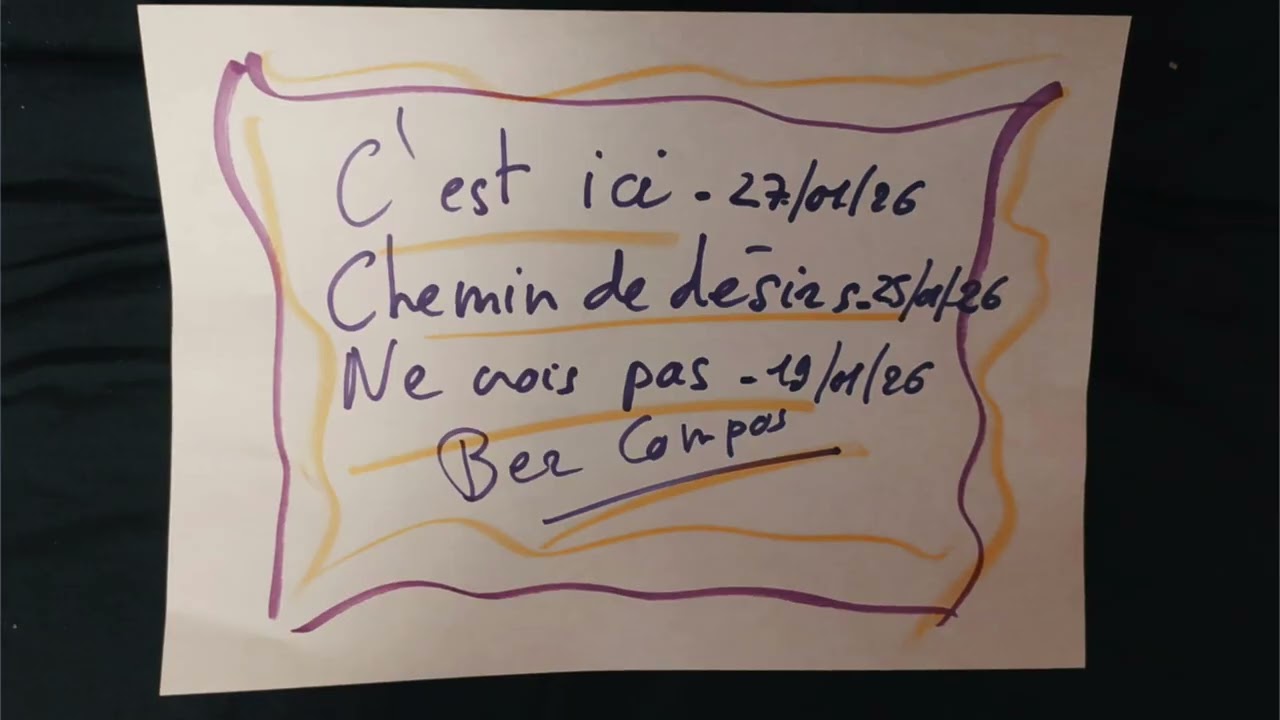 C'est ici - 27/01/26
Chemin de désirs - 25/01/26
Ne crois pas - 19/01/26
Ber Campos